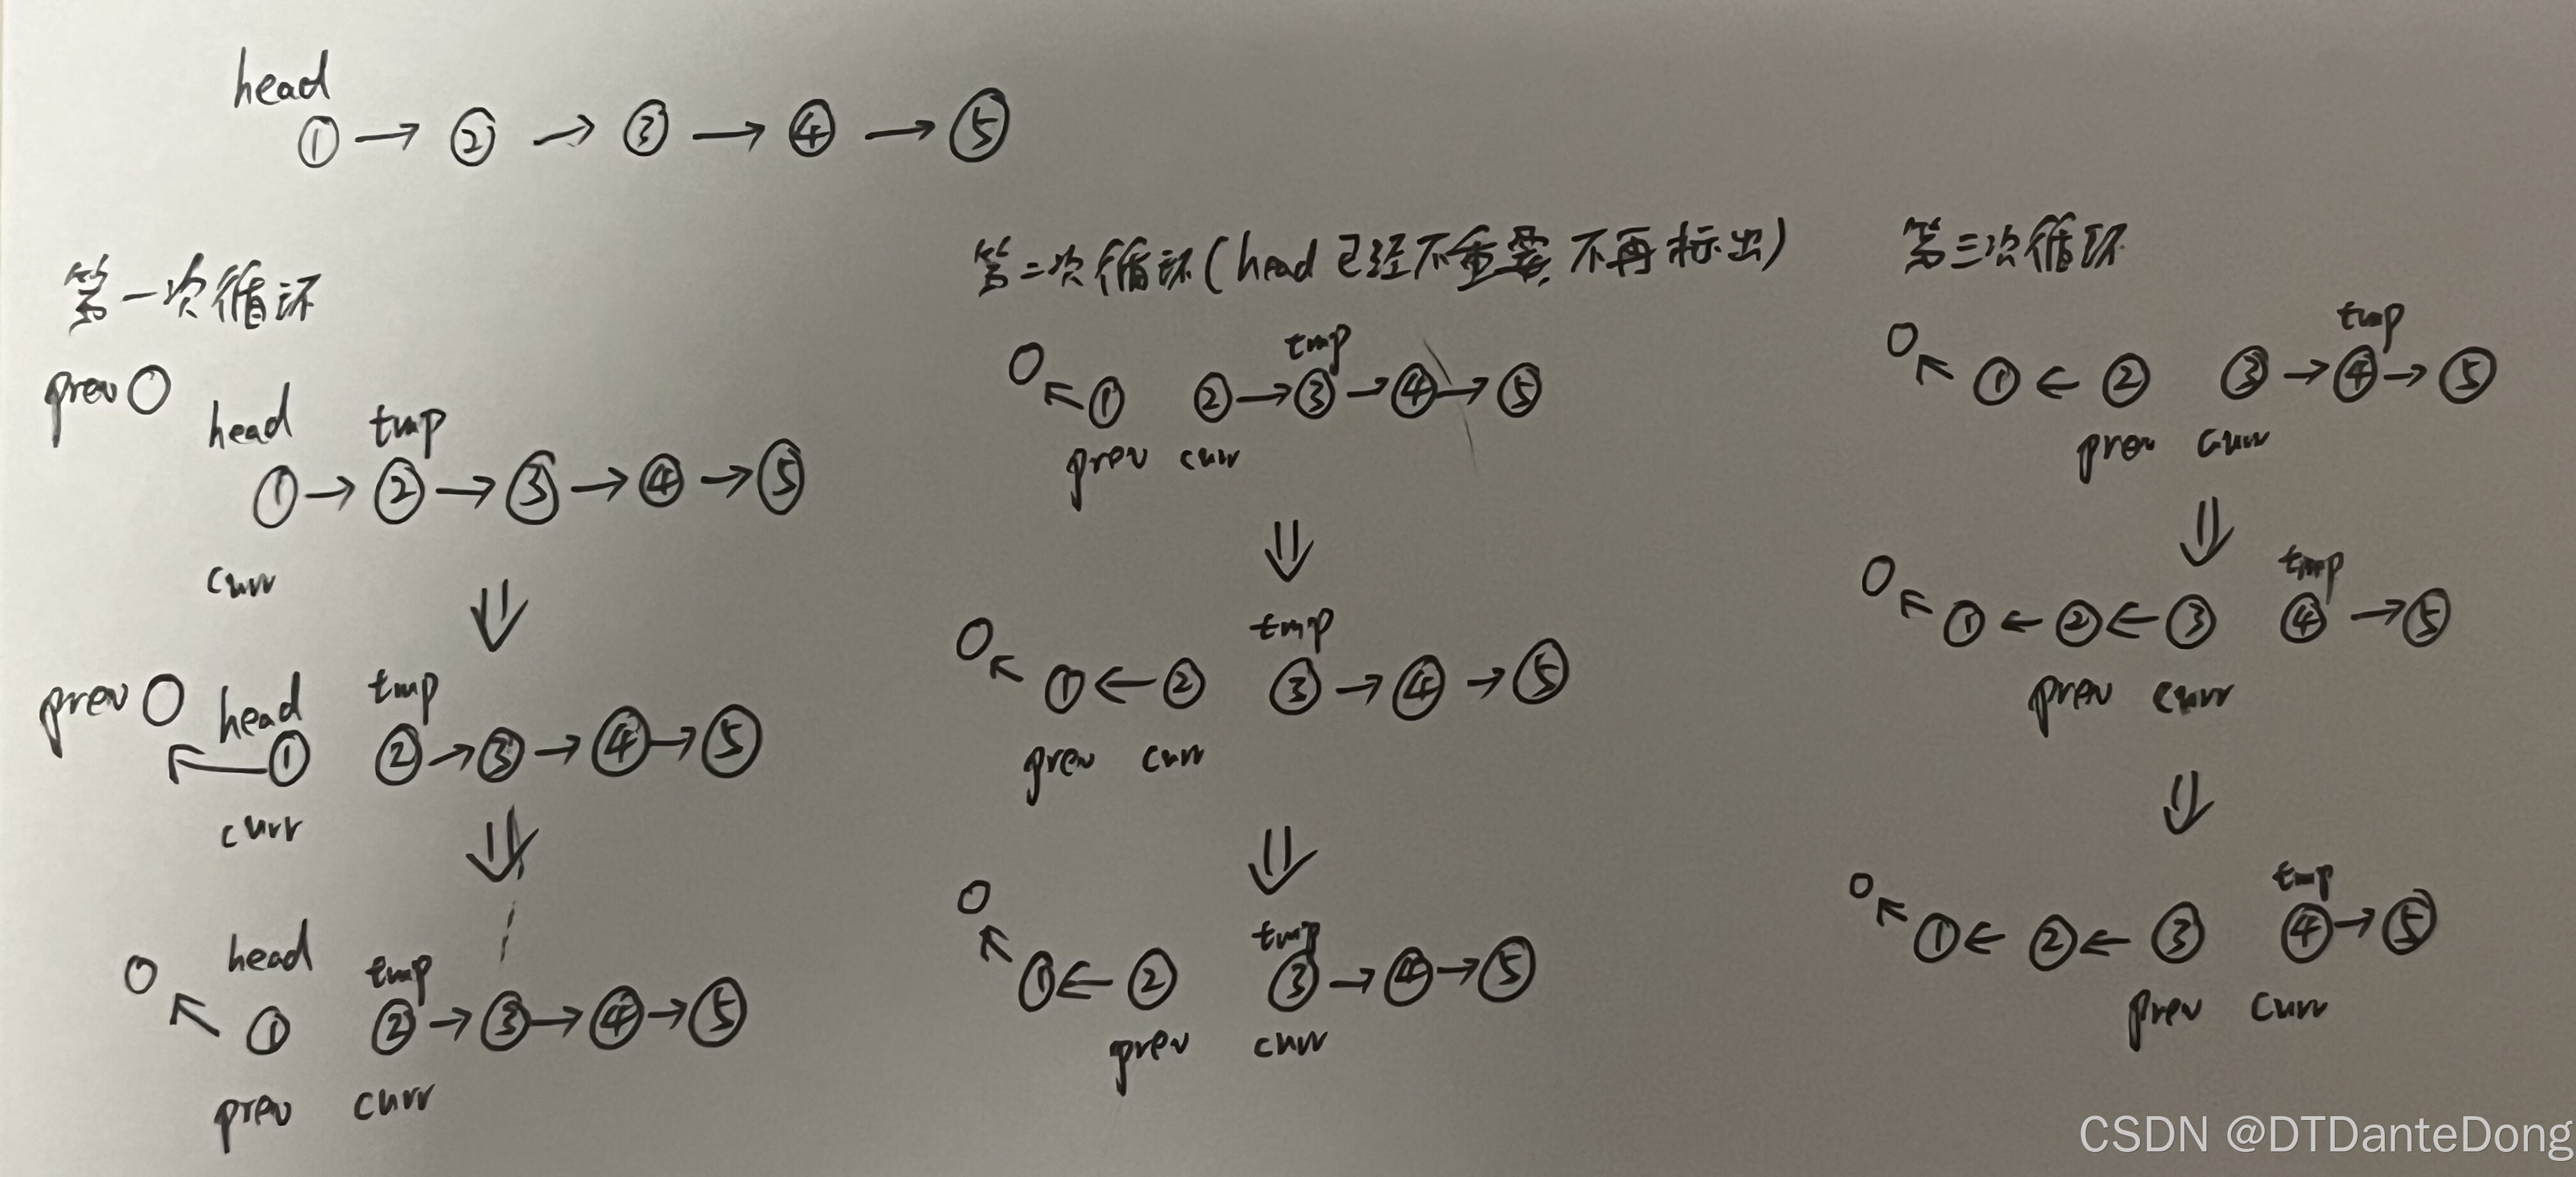 head
① → ② → ③ → ④ → ⑤
第一次循环
prev ○
head tmp
① → ② → ③ → ④ → ⑤
curr
⇓
prev ○ head tmp
← ① ② → ③ → ④ → ⑤
curr
⇓
○ head tmp
↖ ① ② → ③ → ④ → ⑤
prev curr
第二次循环(head已经不重要,不再标出)
○ tmp
↖ ① ② → ③ → ④ → ⑤
prev curr
⇓
○ tmp
↖ ① ← ② ③ → ④ → ⑤
prev curr
⇓
○ tmp
↖ ① ← ② ③ → ④ → ⑤
prev curr
第三次循环
○ tmp
↖ ① ← ② ③ → ④ → ⑤
prev curr
⇓
○ tmp
↖ ① ← ② ← ③ ④ → ⑤
prev curr
⇓
○ tmp
↖ ① ← ② ← ③ ④ → ⑤
prev curr
CSDN @DTDanteDong